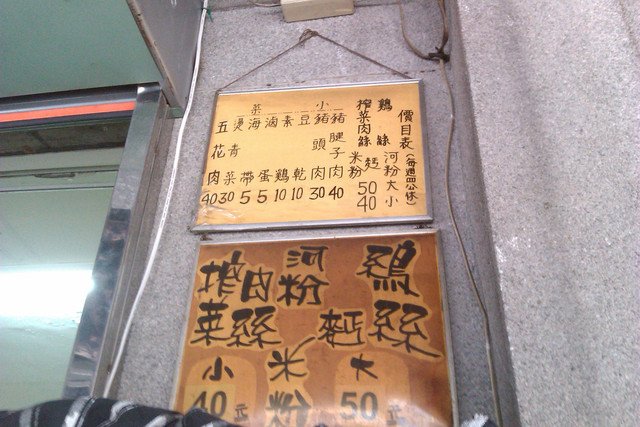 價目表(每週四公休)
鷄絲
榨菜肉絲
河粉
麵
米粉
大 50
小 40
小菜
豬腱子肉 40
豬頭肉 30
豆乾 10
素鷄 10
滷蛋 5
海帶 5
燙青菜 30
五花肉 40
鷄絲
榨菜肉絲
河粉
麵
米粉
大 50元
小 40元